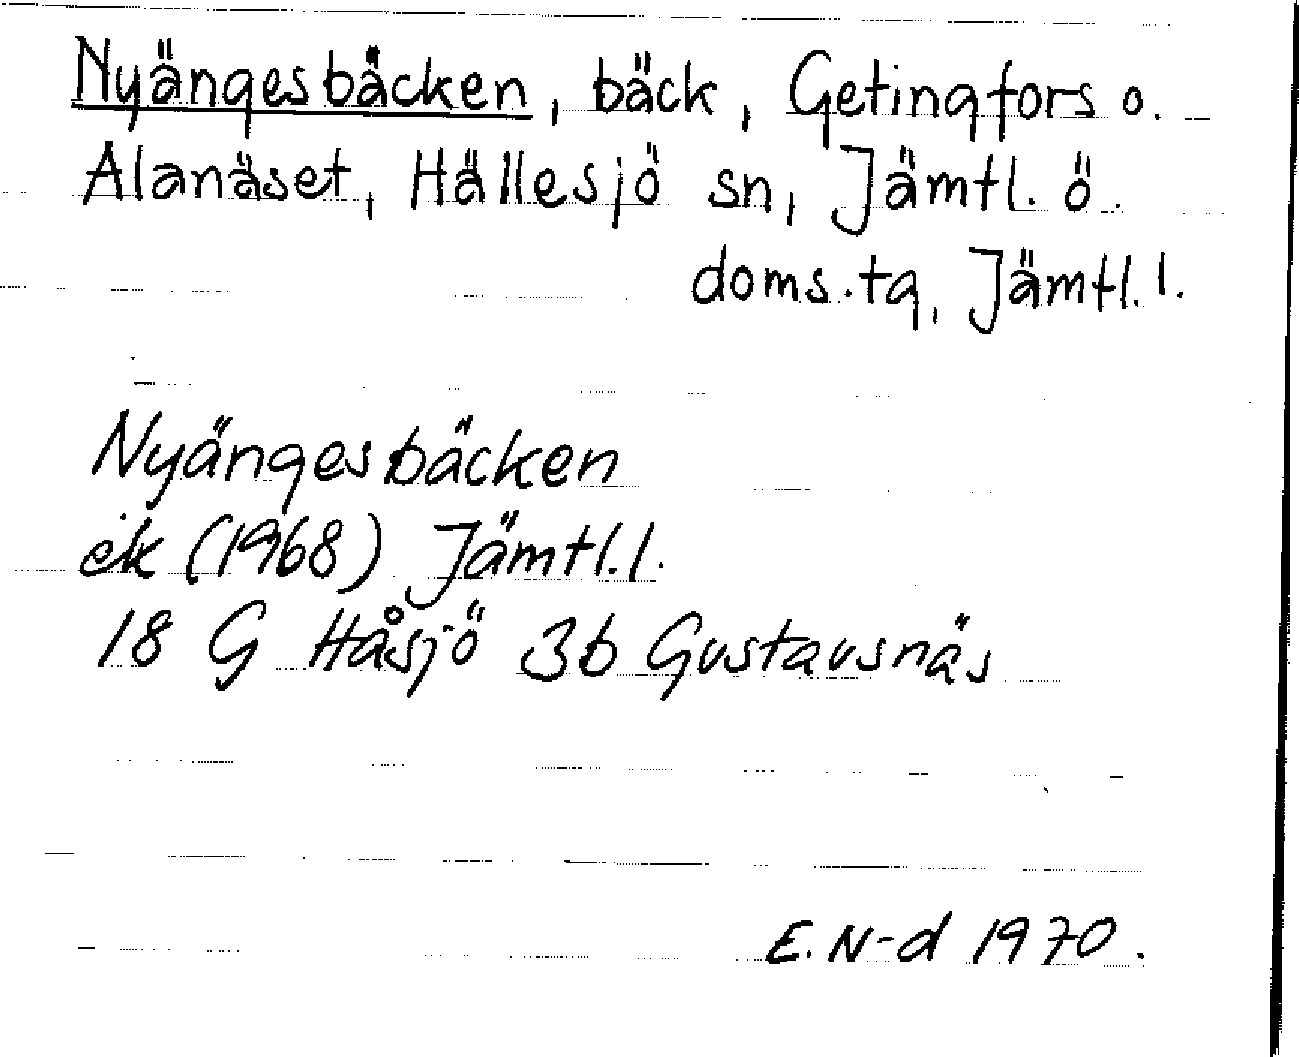 Nyängesbäcken, bäck, Getingfors o.
Alanäset, Hällesjö sn, Jämtl. ö.
doms.tg, Jämtl. l.
Nyängesbäcken
ek (1968) Jämtl. l.
18 G Håsjö 3b Gustavsnäs
E. N-d 1970.